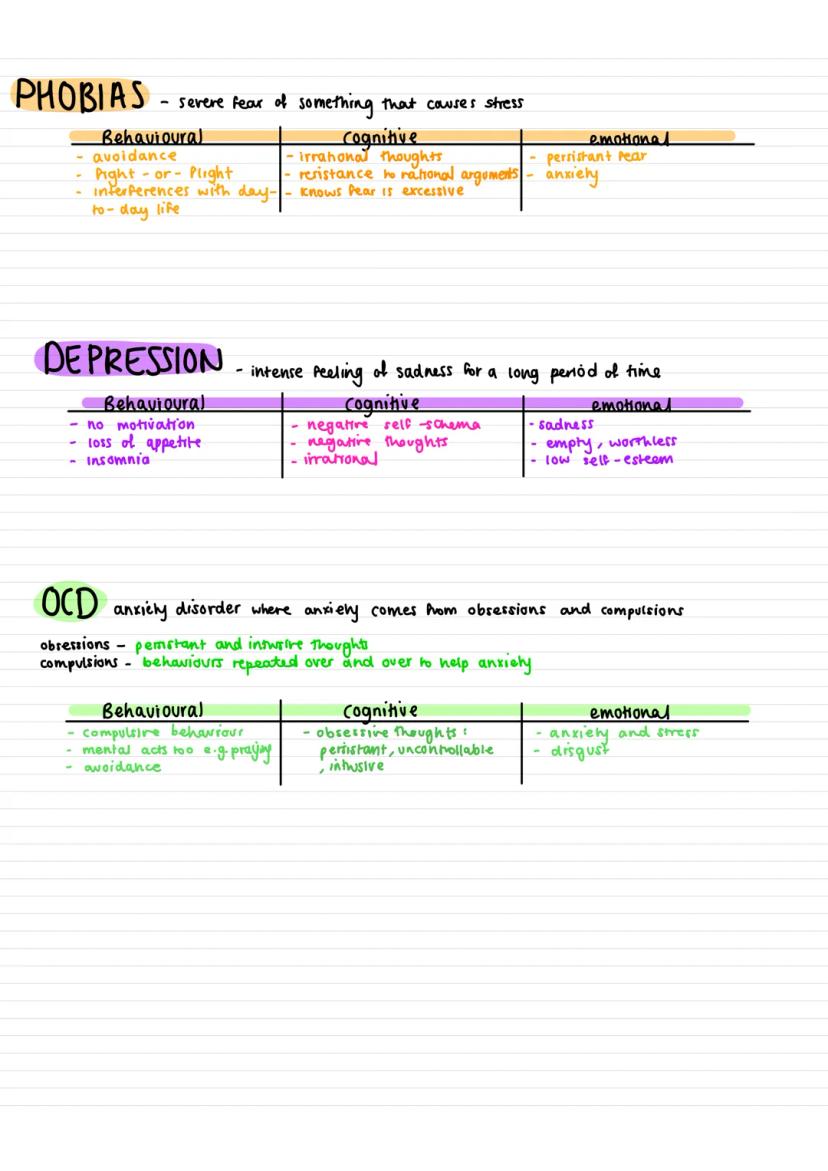 PHOBIAS - severe fear of something that causes stress
Behavioural Cognitive emotional
- avoidance - irrational thoughts - persistant fear
- fight - or - flight - resistance to rational arguments - anxiety
- interferences with day- - knows fear is excessive
to - day life
DEPRESSION - intense feeling of sadness for a long period of time
Behavioural Cognitive emotional
- no motivation - negative self -schema - sadness
- loss of appetite - negative thoughts - empty, worthless
- insomnia - irrational - low self - esteem
OCD anxiety disorder where anxiety comes from obsessions and compulsions
obsessions - persistant and intusive thoughts
compulsions - behaviours repeated over and over to help anxiety
Behavioural Cognitive emotional
- compulsive behaviour - obsessive thoughts : - anxiety and stress
- mental acts too e.g. praying persistant, uncontrollable - disgust
- avoidance , intusive